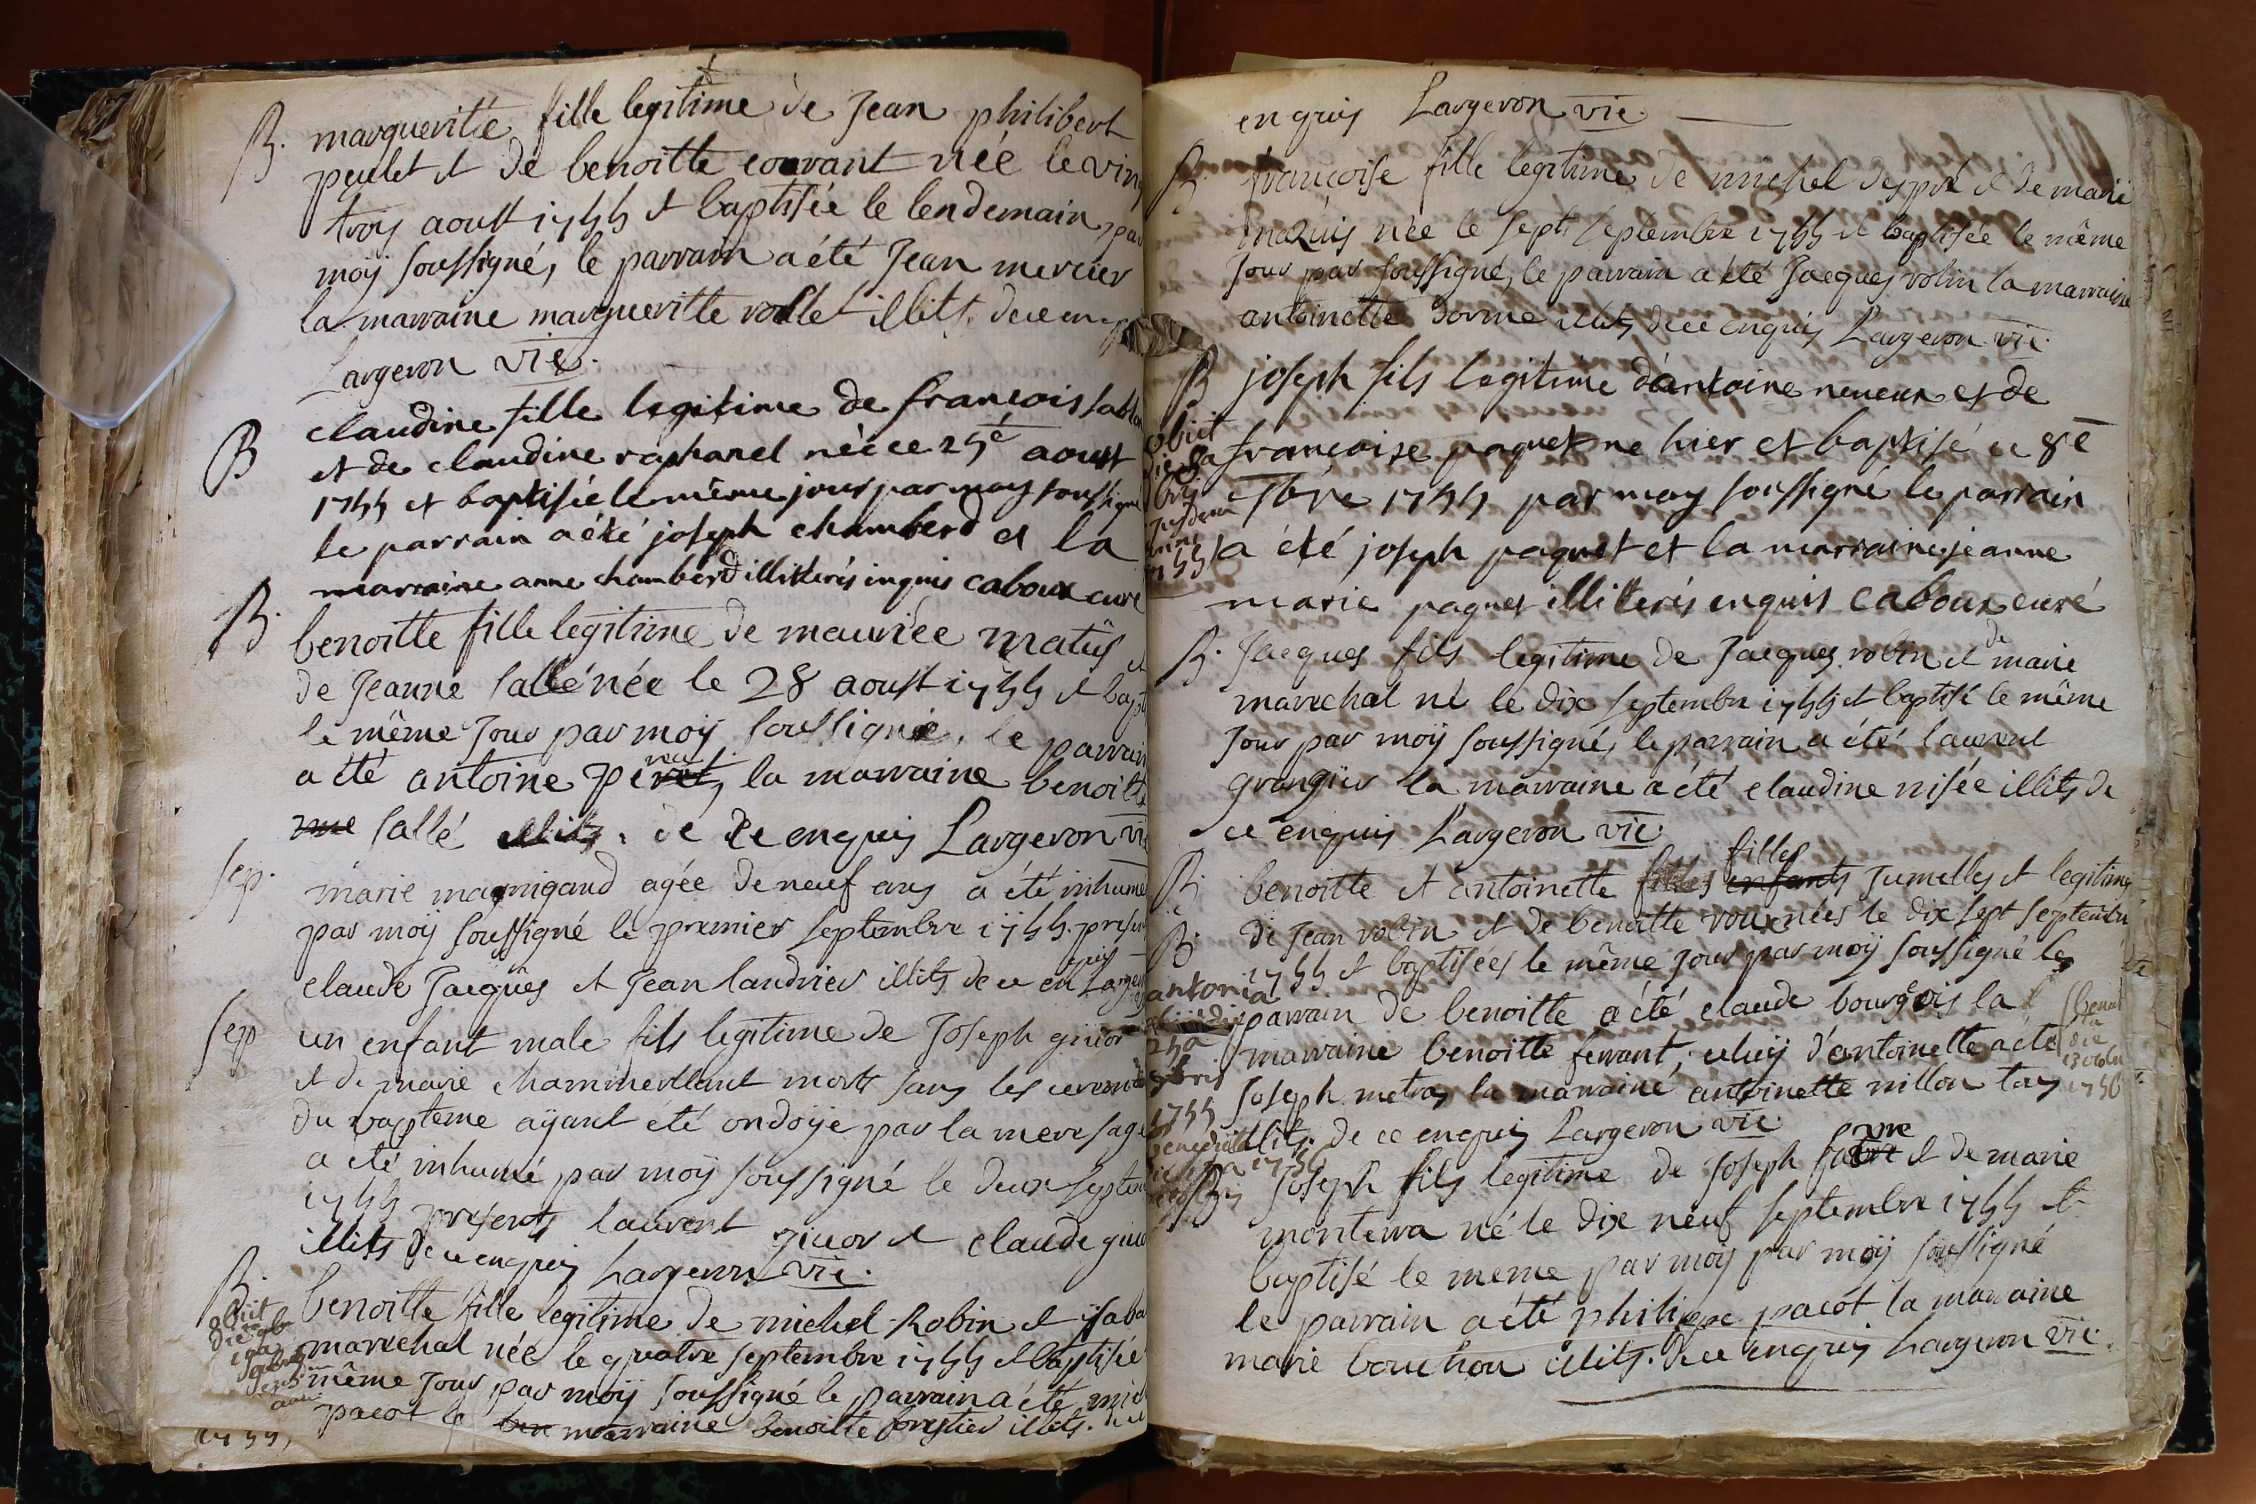 B. marguerite fille legitime de Jean philibert
peulet et de benoitte couvant née le vin
troy aoust 1755 et baptisée le lendemain par
moÿ soussigné, le parrain a été Jean mercier
la marraine margueritte vollet illits. de ce en
Largeron vic.
B claudine fille legitime de francois
et de claudine raphanel née ce 25é aoust
1755 et baptisée le même jour par moy soussigné
le parrain a été joseph chamberd et la
marraine anne chamberd illitterés inquis caboux curé
B. benoitte fille legitime de mauriée matús et
de Jeanne sallé née le 28 aoust 1755 et bapt
le même Jour par moÿ soussigné, le parrain
a été antoine la marraine benoitte
sallé illits. de ce enquis Largeron vic
sep. marie magnigaud agée de neuf ans a été inhumé
par moÿ soussigné le premier septembre 1755. presen
claude Jacques et Jean landrier illits de ce enquis Larger
sep un enfant male fils legitime de Joseph giuor
et de marie chammerllant mort sans les ceremo
du bapteme aÿant été ondoÿé par la mere sage
a été inhumé par moÿ soussigné le deux septem
1755 presents laurent giuor et claude giuo
illits de ce enquis Largeron vic.
B. benoitte fille legitime de michel Robin et ysaba
marechal née le quatre septembre 1755 et baptisée
même Jour par moÿ soussigné le parrain a été mic
pacot la marraine benoitte forestier illits. de ce
obiit
die
19a
1755,
enquis Largeron vic.
B. francoise fille legitime de michel despré et de marie
maquis née le sept septembre 1755 et baptisée le même
Jour par soussigné, le parrain a été Jacques robin la marraine
antoinette dorme illits de ce enquis Largeron vic.
B joseph fils legitime d'antoine neveux et de
francoise paquet ne hier et baptisé ce 8e
7bre 1755 par moy soussigné le parrain
a été joseph paquet et la marraine jeanne
marie paquet illiterés enquis caboux curé
obiit
1755
B. Jacques fils legitime de Jacques robin et de marie
marechal né le dix septembre 1755 et baptisé le même
Jour par moÿ soussigné, le parrain a été laurent
grangier la marraine a été claudine nisée illits de
ce enquis Largeron vic.
B. benoitte et antoinette filles enfants Jumelles et legitimes
B. de Jean robin et de benoitte roux nées le dix sept septembre
1755 et baptisées le même Jour par moÿ soussigné le
parrain de benoitte a été claude bourgeois la
marraine benoitte ferrant, celuÿ d'antoinette a été
Joseph metras la marraine antoinette nillon tous
illits. de ce enquis Largeron vic.
antonia
25a
1755
1756
benoit
die
13 octobr
1756
B. Joseph fils legitime de Joseph favre et de marie
monterra né le dix neuf septembre 1755 et
baptisé le meme par moÿ par moÿ soussigné
le parrain a été philippe pacot la marraine
marie bouchon illits. de ce enquis Largeron vic.